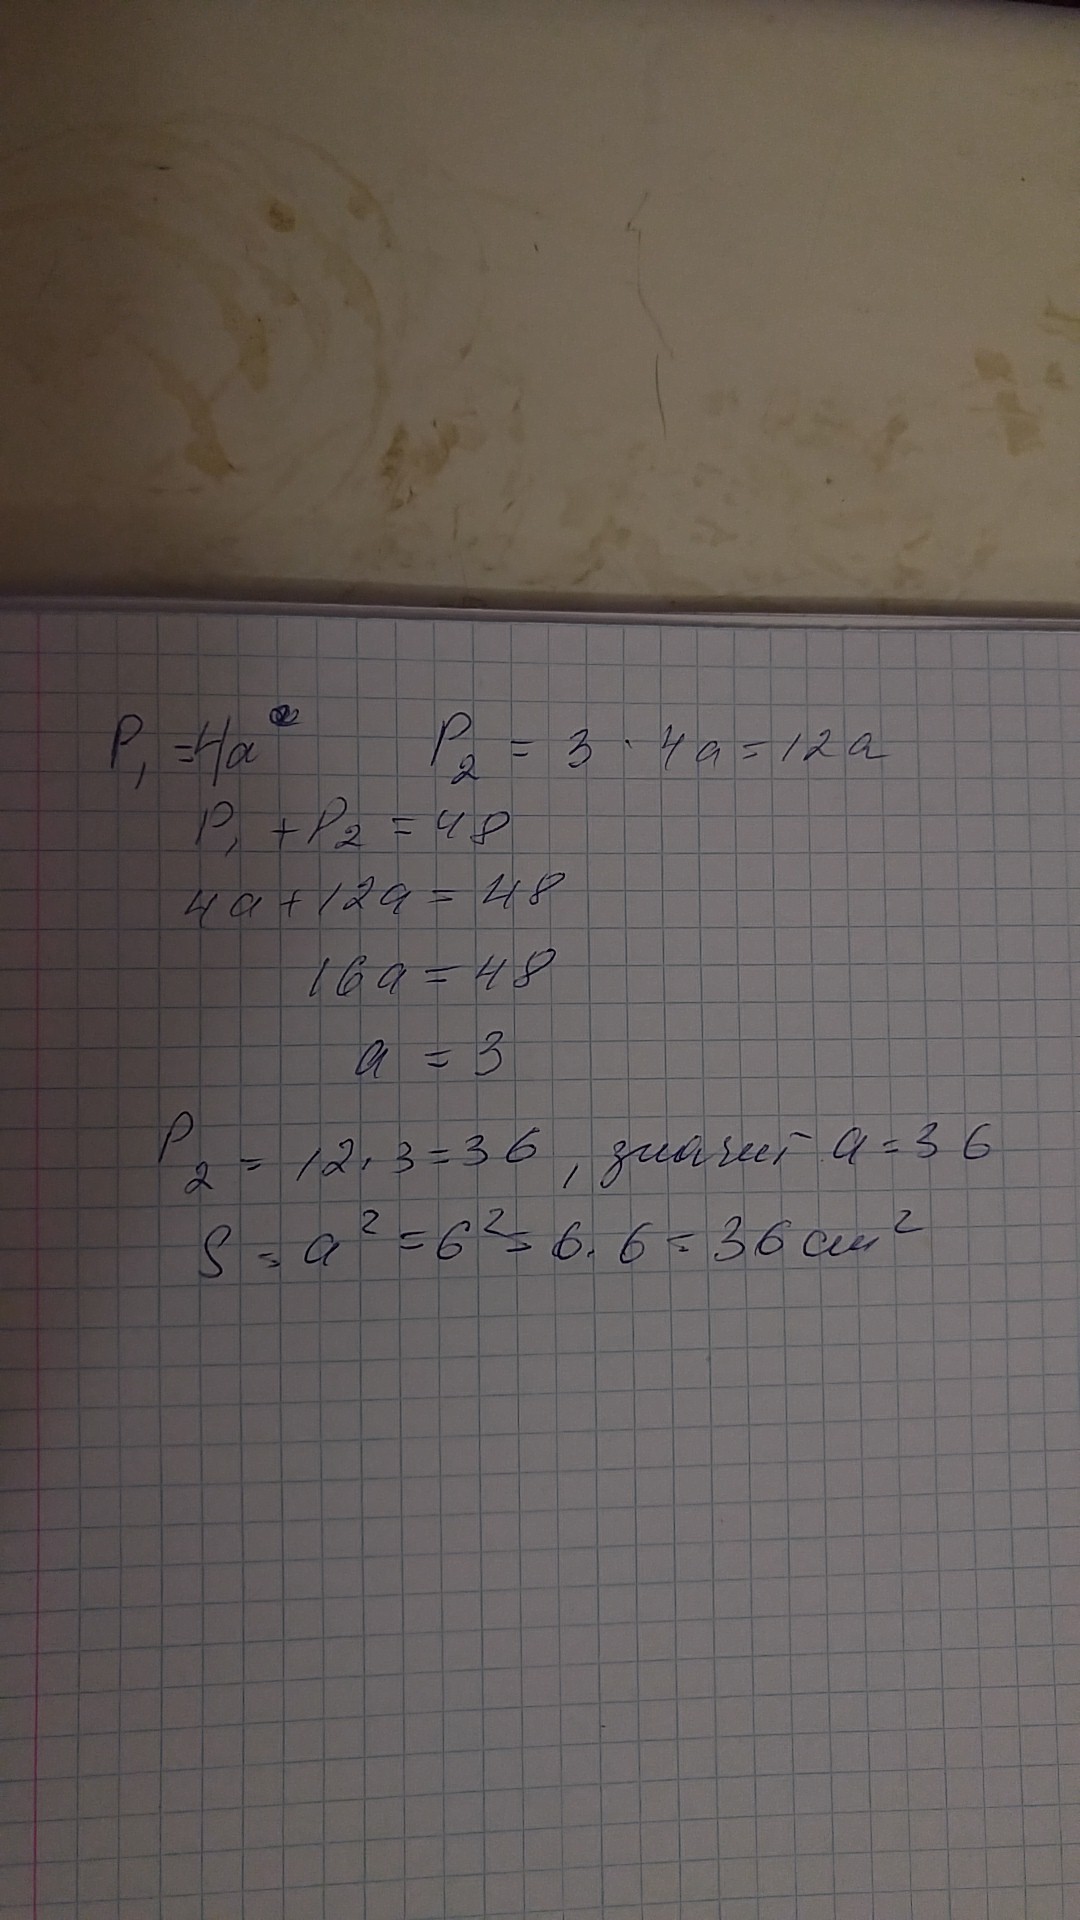 P₁ = 4a P₂ = 3 · 4a = 12a
P₁ + P₂ = 48
4a + 12a = 48
16a = 48
a = 3
P₂ = 12 · 3 = 36, значит a = 36
S = a² = 6² = 6 · 6 = 36 см²